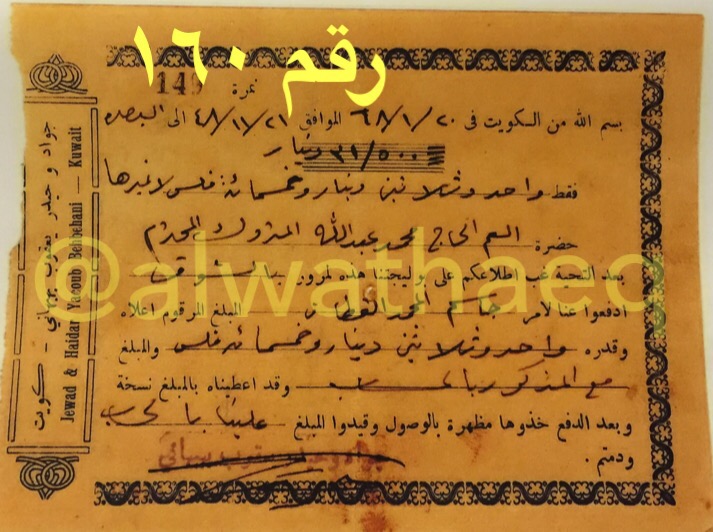 رقم ١٦٠
نمرة 149
بسم الله من الكويت في ٦٨/١/٢٠ الموافق ٤٨/١١/٢١ الى البصره
٣١/٥٠٠ دينار
فقط واحد وثلاثين دينار وخمسمائة فلس لا غيرها
حضرة الحاج محمد عبدالله المتروك المحترم
بعد التحية غب اطلاعكم على بوليجتنا هذه لمرور
ادفعوا عنا لامر المبلغ المرقوم اعلاه
وقدره واحد وثلاثين دينار وخمسمائة فلس والمبلغ
وقد اعطيناه بالمبلغ نسخة
وبعد الدفع خذوها مظهرة بالوصول وقيدوا المبلغ علينا بالحساب
ودمتم .
جواد وحيدر يعقوب بهبهاني
جواد و حيدر يعقوب بهبهاني – كويت
Jewad & Haidar Yacoub Behbehani — Kuwait
@alwathaeq